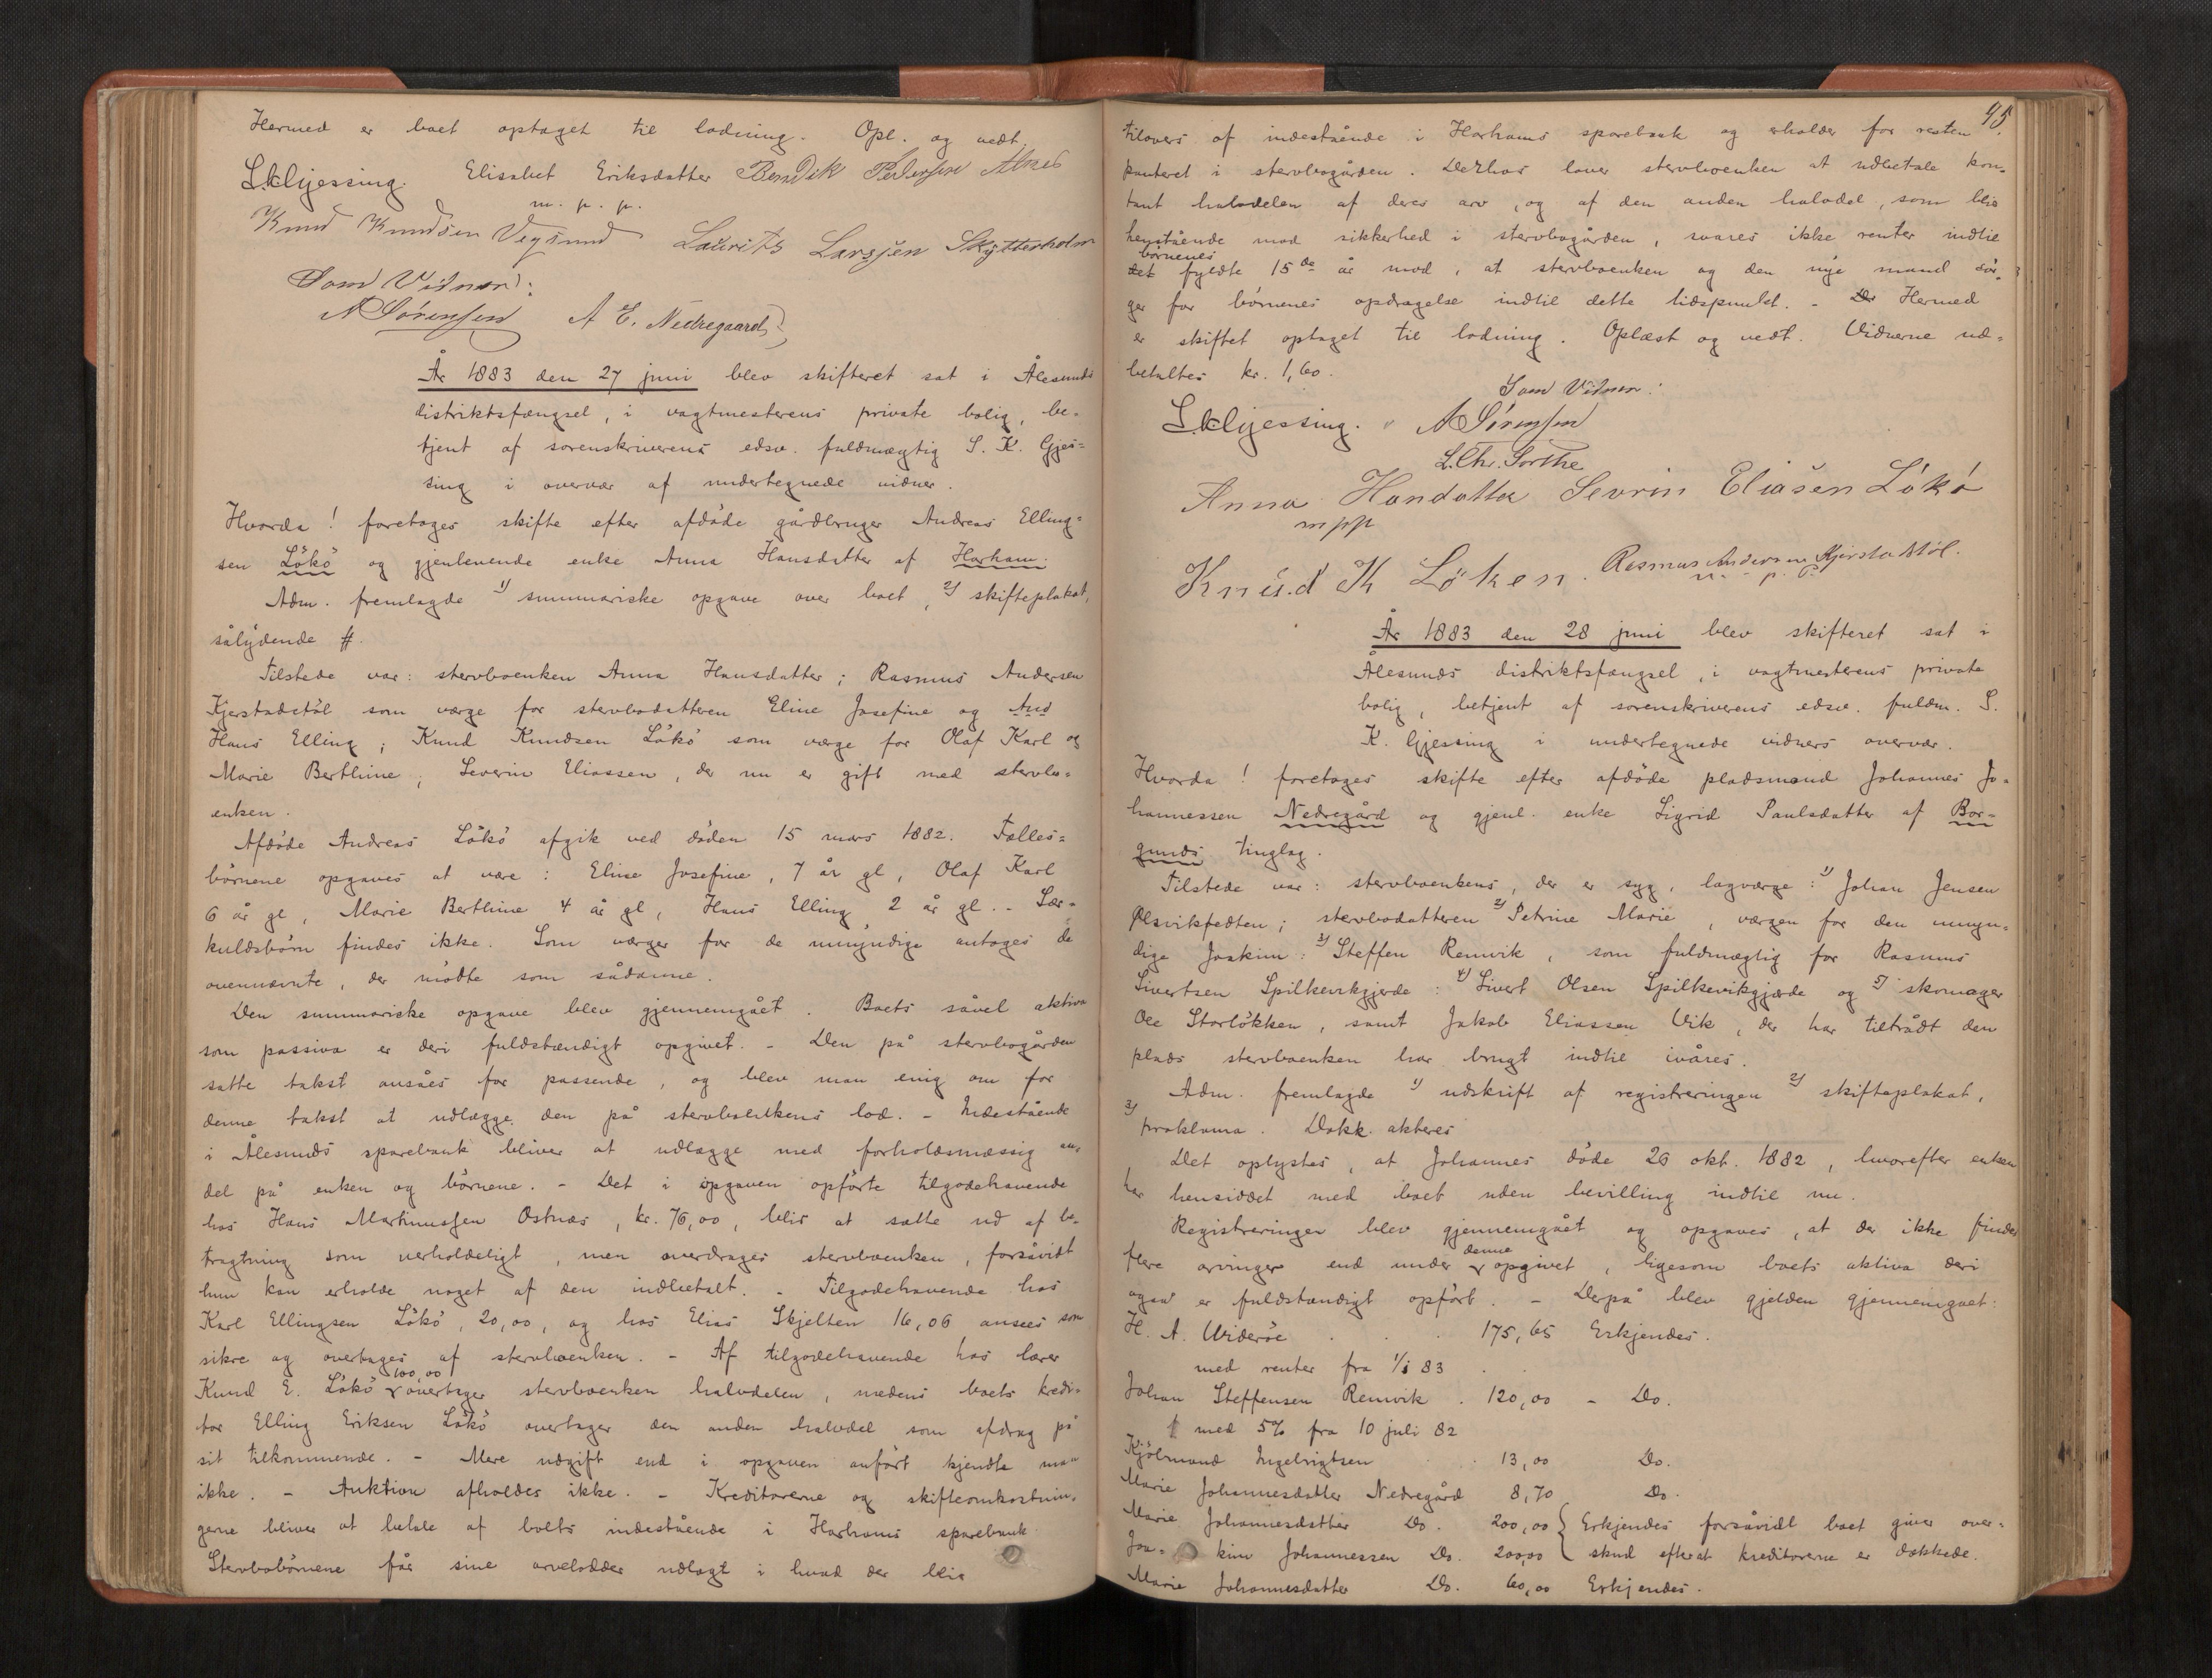 Hermed er boet optaget til lodning. Opl. og vedt.
S.K.Gjessing. Elisabet Eriksdatter Bendik Pedersen Alnes
m. p. p.
Knud Knudsen Vegsund Laurits Larssen Skytterholm
Som Vidner:
A Sørensen A E. Nedregaard
År 1883 den 27 juni blev skifteret sat i Ålesunds
distriktsfængsel, i vagtmesterens private bolig, be-
tjent af sorenskriverens edsv. fuldmægtig S. K. Gjes-
sing i overvær af undertegnede vidner.
Hvorda! foretages skifte efter afdöde gårdbruger Andreas Elling-
sen Lökö og gjenlevende enke Anna Hansdatter af Harham.
Adm. fremlagde 1) summariske opgave over boet, 2) skifteplakat,
sålydende #.
Tilstede var: stervboenken Anna Hansdatter; Rasmus Andersen
Kjerstadstöl som værge for stervbodatteren Eline Josefine og And
Hans Elling; Knud Knudsen Lökö som værge for Olaf Karl og
Marie Berthine; Severin Eliassen, der nu er gift med stervbo-
enken.
Afdöde Andreas Lökö afgik ved döden 15 mars 1882. Fælles-
börnene opgaves at være: Eline Josefine, 7 år gl, Olaf Karl
6 år gl, Marie Berthine 4 år gl, Hans Elling 2 år gl. - Sær-
kuldsbörn findes ikke. Som værger for de umyndige antoges de
ovennævnte, der mödte som sådanne.
Den summariske opgave blev gjennemgået. Boets såvel aktiva
som passiva er deri fuldstændigt opgivet. - Den på stervbogården
satte takst ansåes for passende, og blev man enig om for
denne takst at udlægge den på stervboenkens lod. - Indestående
i Ålesunds sparebank bliver at udlægge med forholdsmæssig an-
del på enken og börnene. - Det i opgaven opförte tilgodehavende
hos Hans Martinussen Ostnæs, kr. 76,00, blir at sætte ud af be-
tragtning som uerholdeligt, men overdrages stervboenken, forsåvidt
hun kan erholde noget af den indbetalt. - Tilgodehavende hos
Karl Ellingsen Lökö, 20,00, og hos Elias Skjelten 16,06 ansees som
sikre og overtages af stervboenken. - Af tilgodehavende hos lærer
100,00
Knud E. Lökö overtager stervboenken halvdelen, medens boets kredi-
tor Elling Eriksen Lökö overtager den anden halvdel som afdrag på
sit tilkommende. - Mere udgift end i opgaven anfört kjendte man
ikke. - Auktion afholdes ikke. - Kreditorerne og skifteomkostnin-
gerne bliver at betale af boets indestående i Harhams sparebank
Stervbobörnene får sine arvelodder udlagt i hvad der blir
95.
tilovers af indestående i Harhams sparebank og erholder for resten
panteret i stervbogården. Derhos lover stervboenken at udbetale kon-
tant halvdelen af deres arv, og af den anden halvdel, som blir
henstående mod sikkerhed i stervbogården, svares ikke renter indtil
börnenes
det fyldte 15de år mod, at stervboenken og den nye mand sör-
ger for börnenes opdragelse indtil dette tidspunkt. - De Hermed
er skiftet optaget til lodning. Oplæst og vedt. Vidnerne ud-
betaltes kr. 1,60.
Som Vidner:
S.K.Gjessing. A Sørensen
L. Chr. Sorthe
Anna Handatter Sevrin Eliasen Lökö
mpp
Knud K Löken. Rasmus Andersen Kjerstadstöl.
m. p. p.
År 1883 den 28 juni blev skifteret sat i
Ålesunds distriktsfængsel, i vagtmesterens private
bolig, betjent af sorenskriverens edsv. fuldm. S.
K. Gjessing i undertegnede vidners overvær.
Hvorda! foretages skifte efter afdöde pladsmand Johannes Jo-
hannessen Nedregård og gjenl. enke Sigrid Paulsdatter af Bor-
gunds tinglag.
Tilstede var: stervboenkens, der er syg, lagværge: 1) Johan Jensen
Alsvikfedten; stervbodatteren 2) Petrine Marie, værgen for den umyn-
dige Joakim: 3) Steffen Remvik, som fuldmægtig for Rasmus
Sivertsen Spilkevikgjerde: 4) Sivert Olsen Spilkevikgjærde og 5) skomager
Ole Storlökken, samt Jakob Eliassen Vik, der har tiltrådt den
plads stervboenken har brugt indtil ivåres.
Adm. fremlagde 1) udskrift af registreringen 2) skifteplakat,
3) proklama. Dokk. akteres
Det oplystes, at Johannes döde 26 okt. 1882, hvorefter enken
har hensiddet med boet uden bevilling indtil nu.
Registreringen blev gjennemgået og opgaves, at der ikke findes
denne
flere arvinger end under opgivet, ligesom boets aktiva deri
også er fuldstændigt opfört. - Derpå blev gjelden gjennemgået:
H. A. Wideröe . . . 175,65 Erkjendes.
med renter fra 1/1 83
Johan Steffensen Remvik . 120,00 - Do.
med 5% fra 10 juli 82
Kjölmand Ingebrigtsen . 13,00 Do.
Marie Johannesdatter Nedregård 8,70 Do.
Marie Johannesdatter Do. 200,00 { Erkjendes forsåvidt boet giver over-
Joa- kim Johannessen Do. 200,00 { skud efterat kreditorerne er dækkede.
Marie Johannesdatter Do. 60,00 Erkjendes.